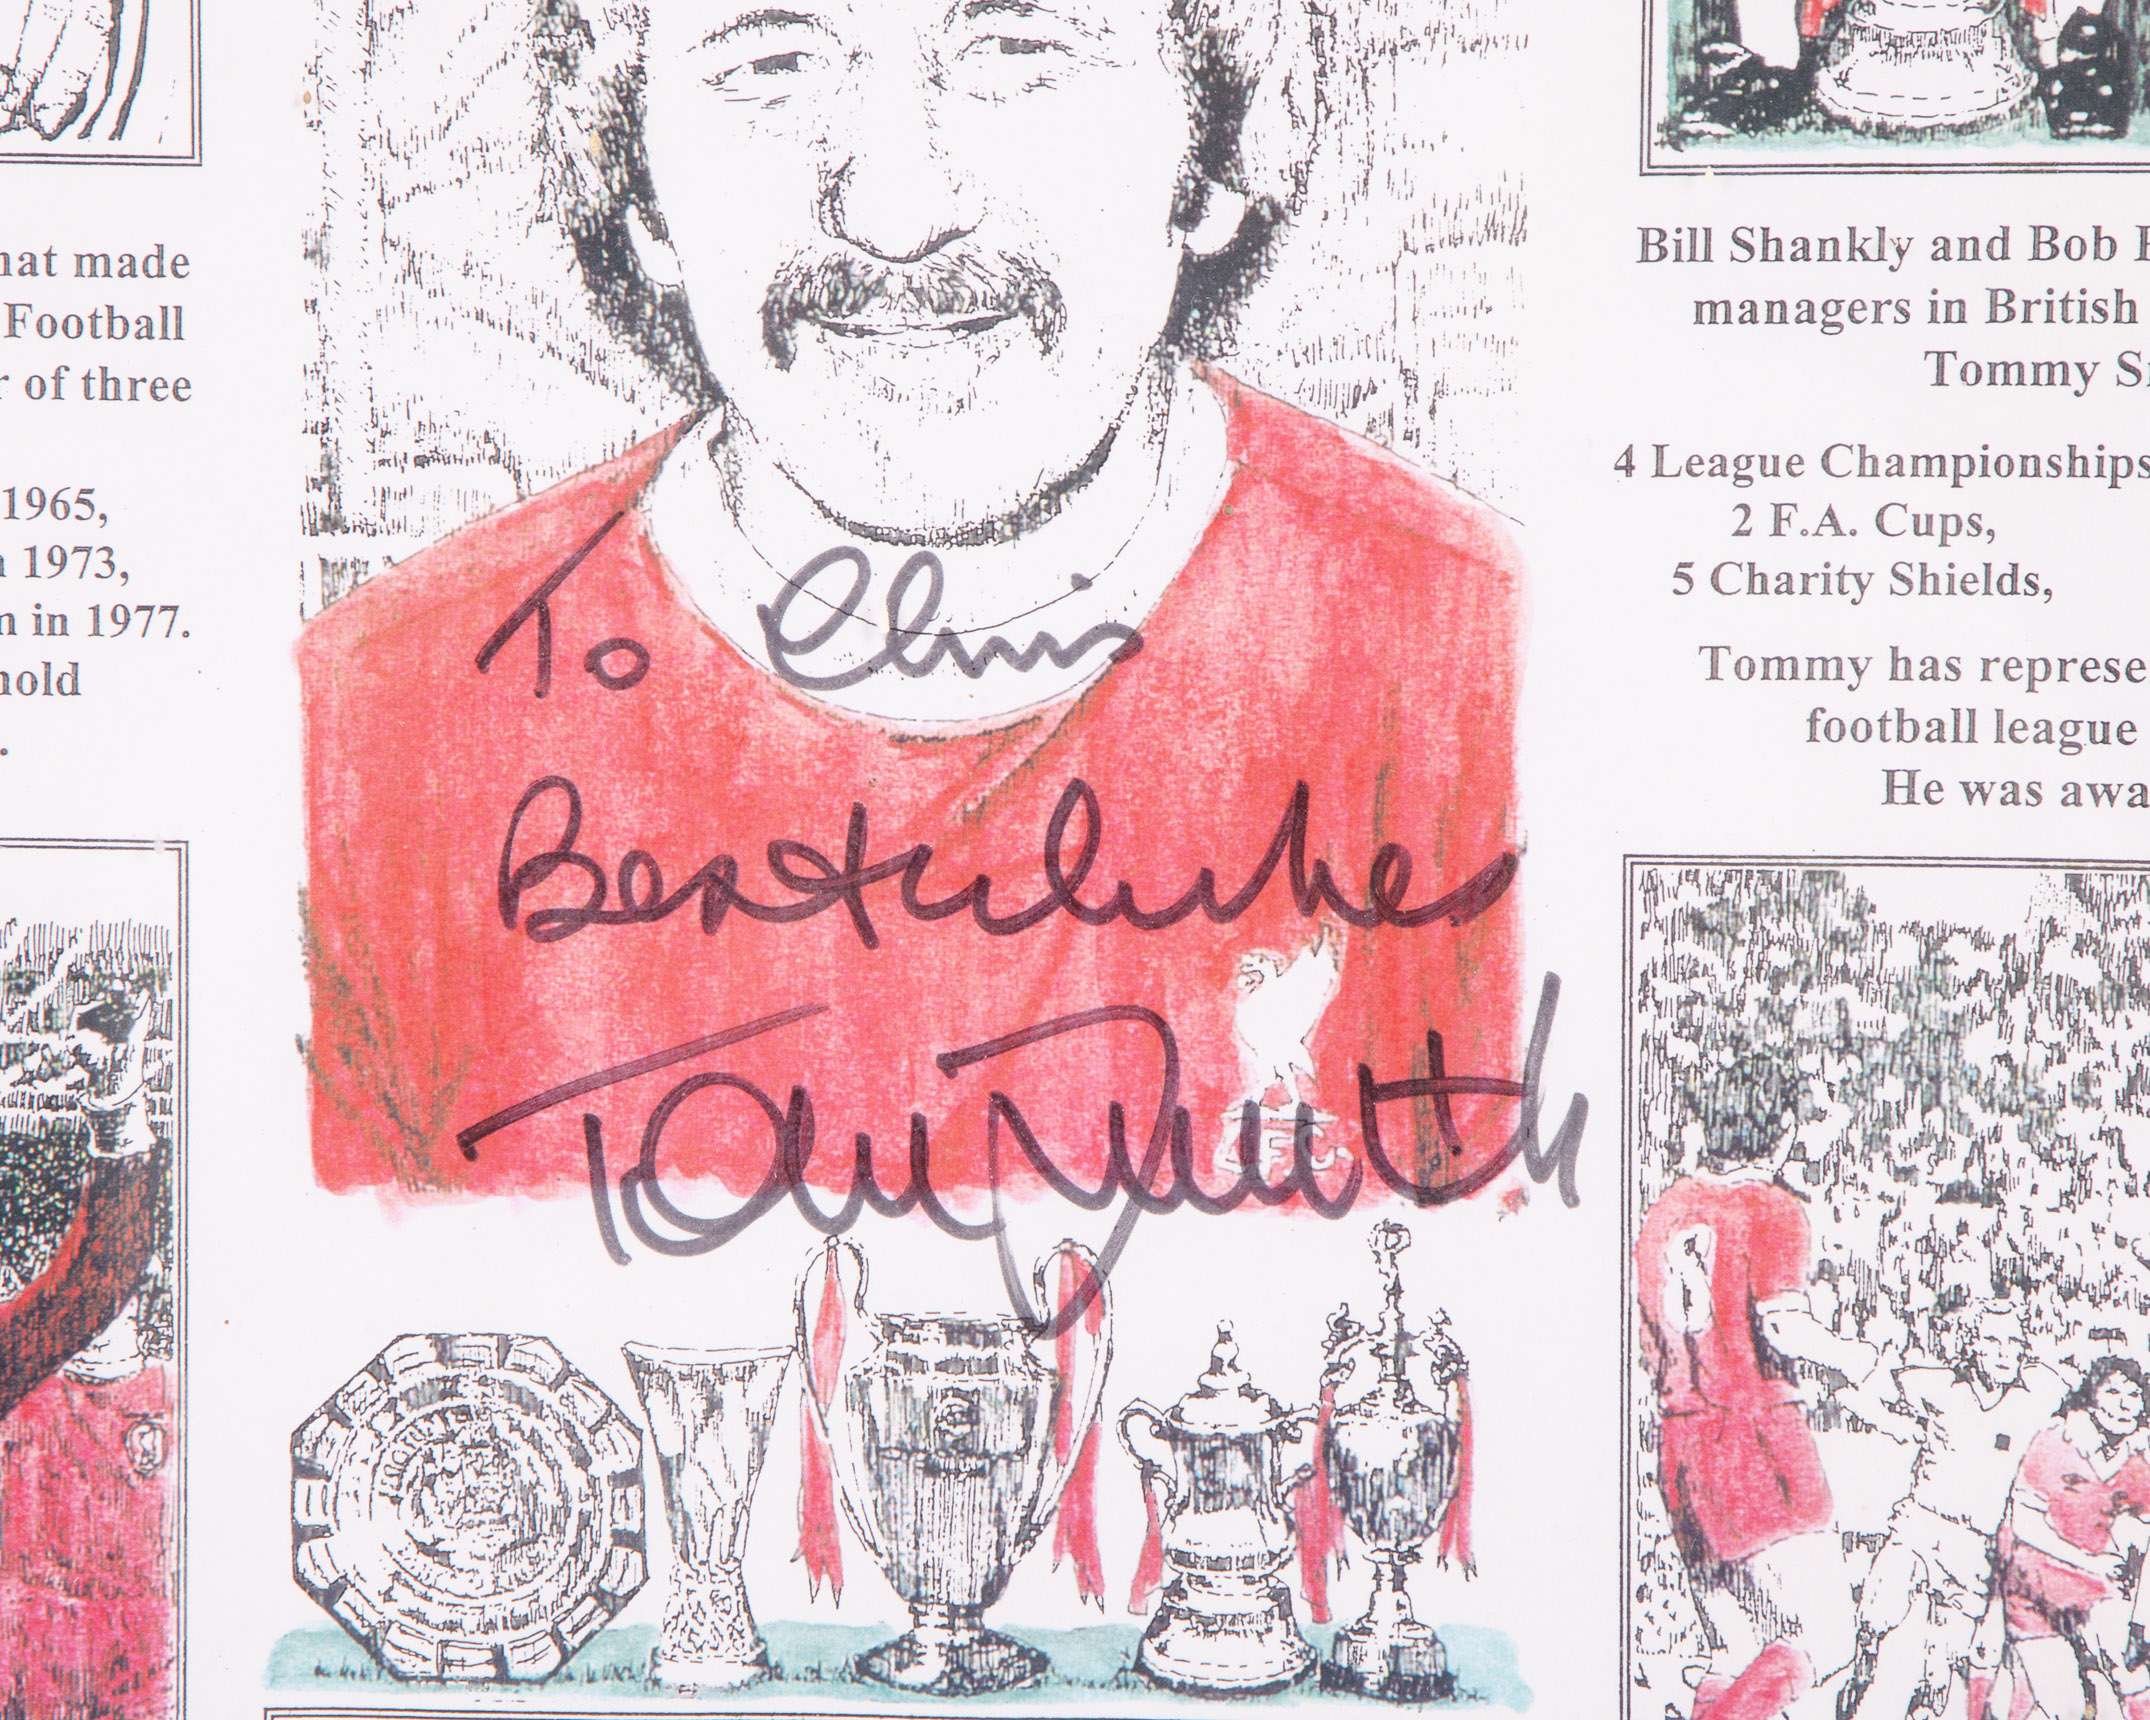 hat made
Football
r of three
1965,
1973,
in 1977.
hold
To Chris
Best wishes
Tommy Smith
L.F.C.
Bill Shankly and Bob
managers in British
Tommy
4 League Championships
2 F.A. Cups,
5 Charity Shields,
Tommy has represe
football league
He was awa